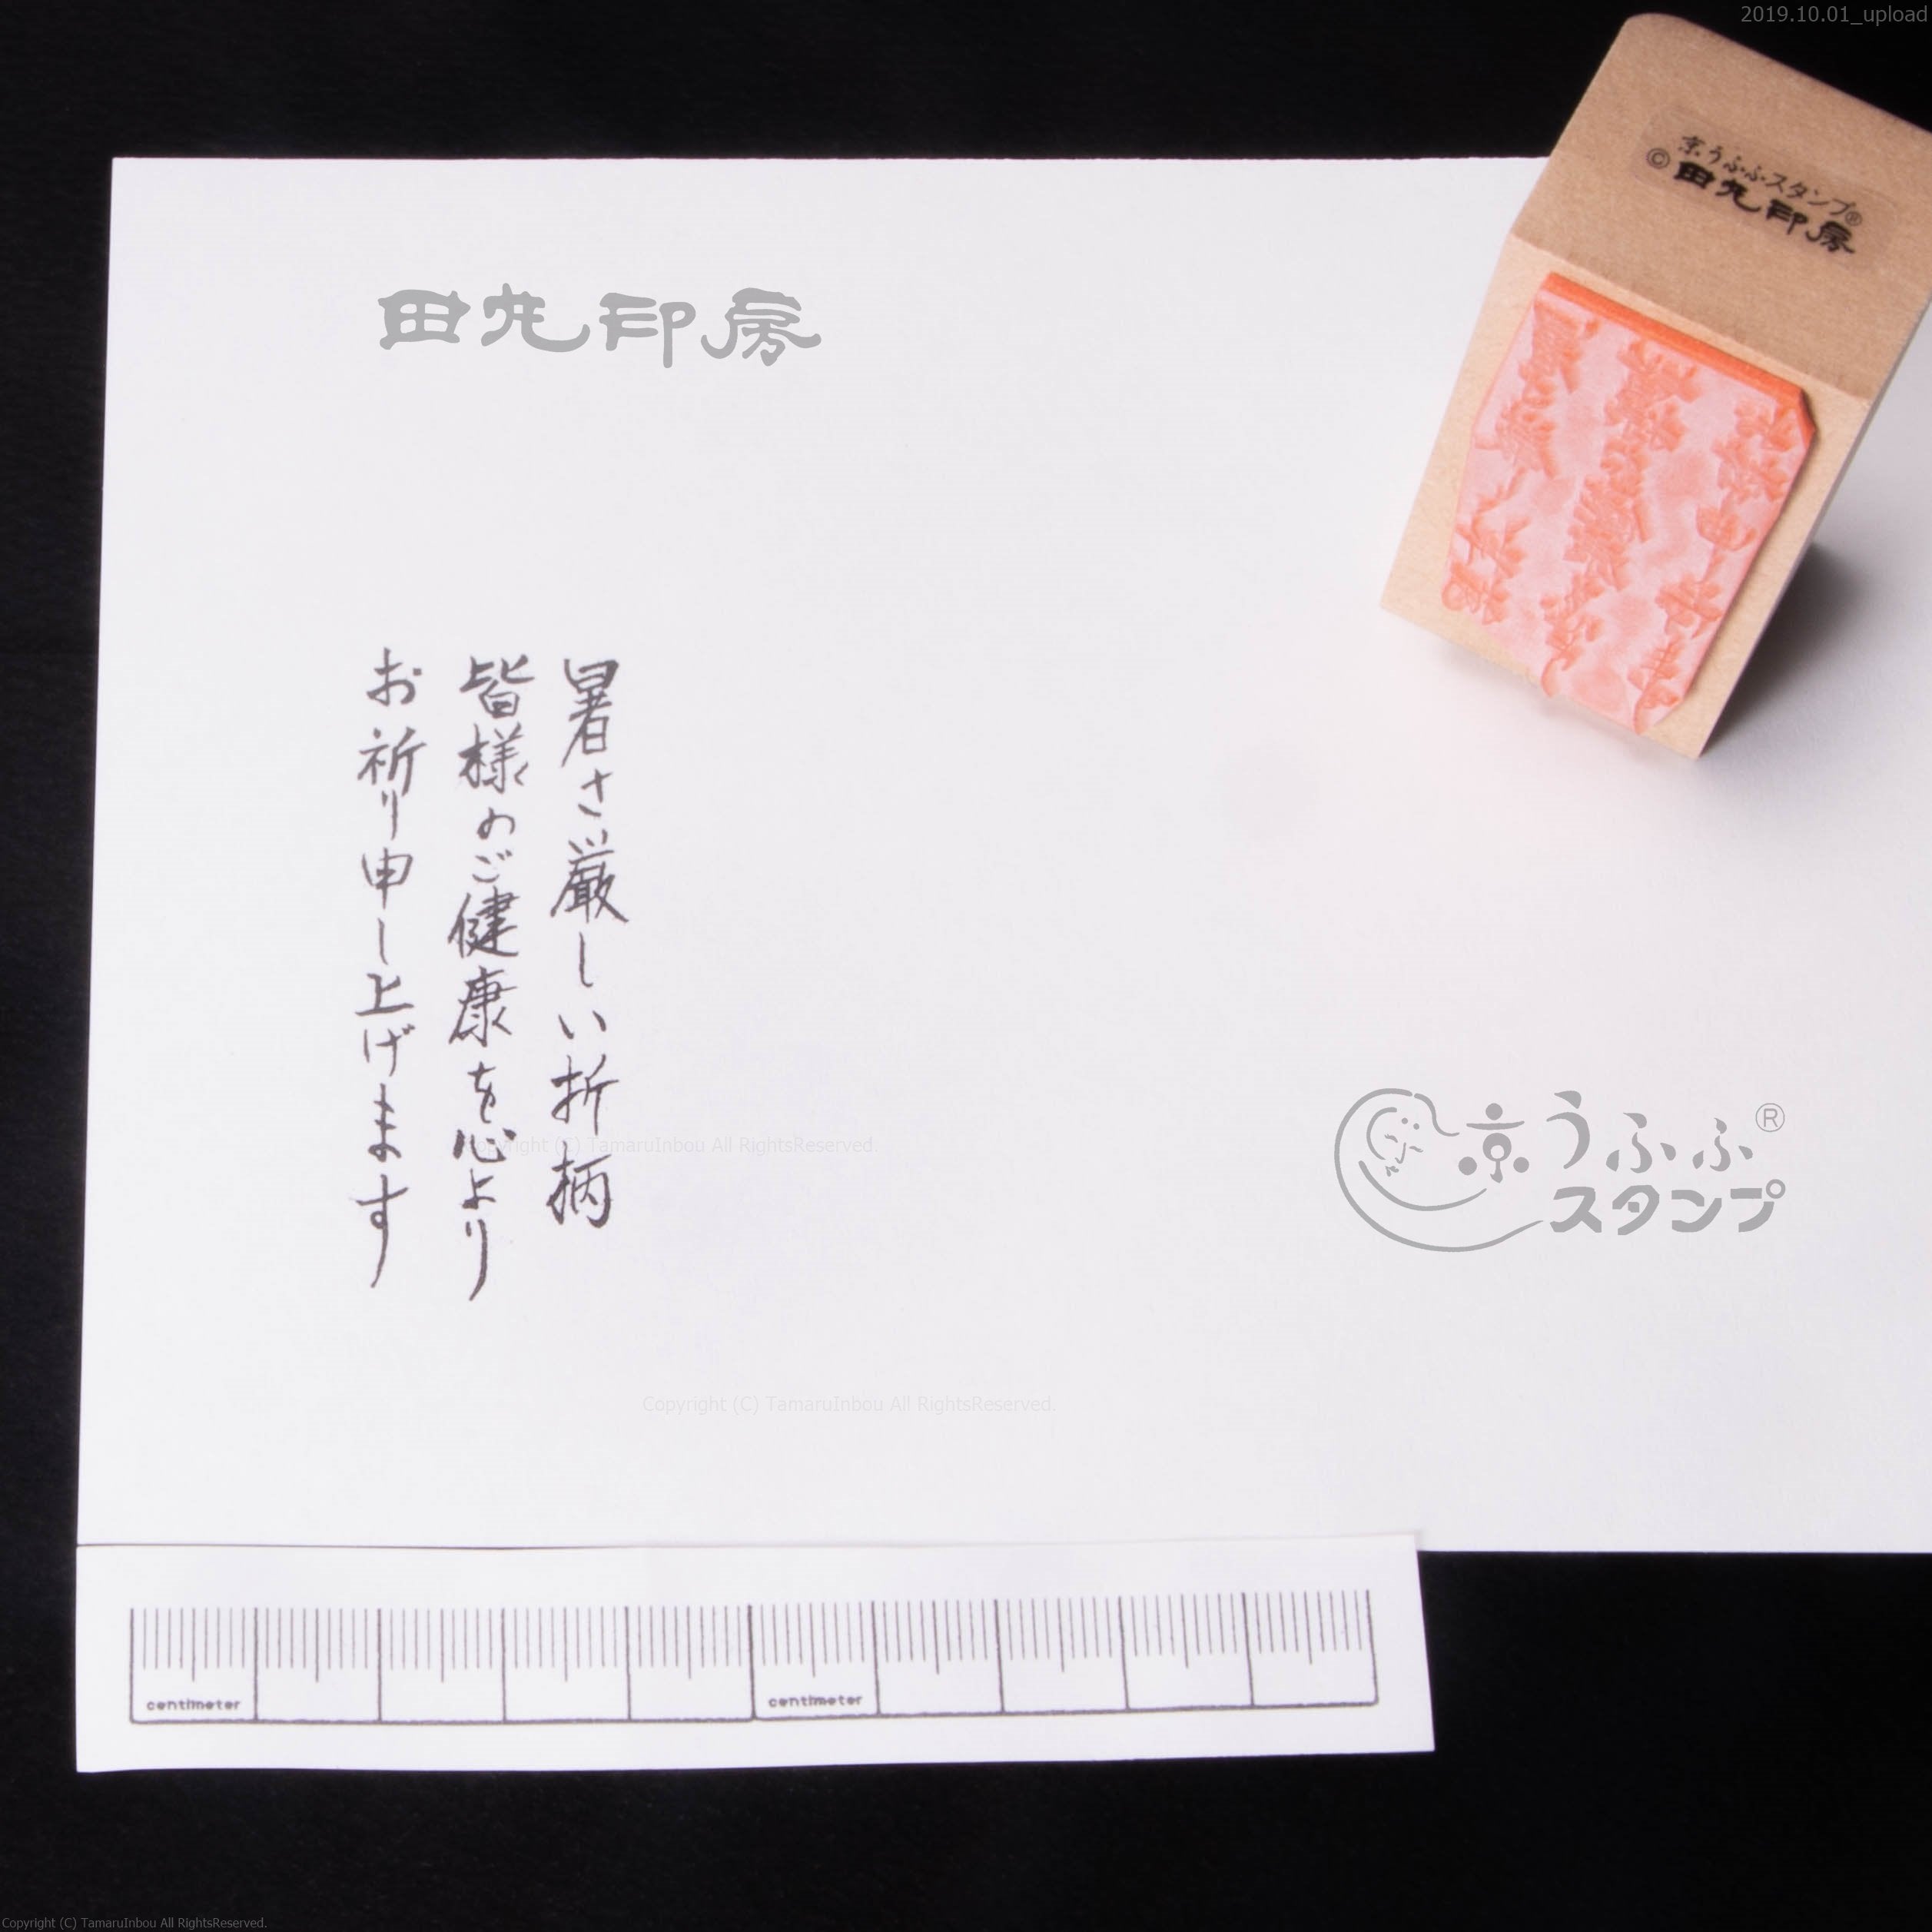 2019.10.01_upload
京うふふスタンプ®
©田丸印房
田丸印房
暑さ厳しい折柄
皆様のご健康を心より
お祈り申し上げます
Copyright (C) TamaruInbou All RightsReserved.
京うふふ®
スタンプ
Copyright (C) TamaruInbou All RightsReserved.
centimeter
centimeter
Copyright (C) TamaruInbou All RightsReserved.